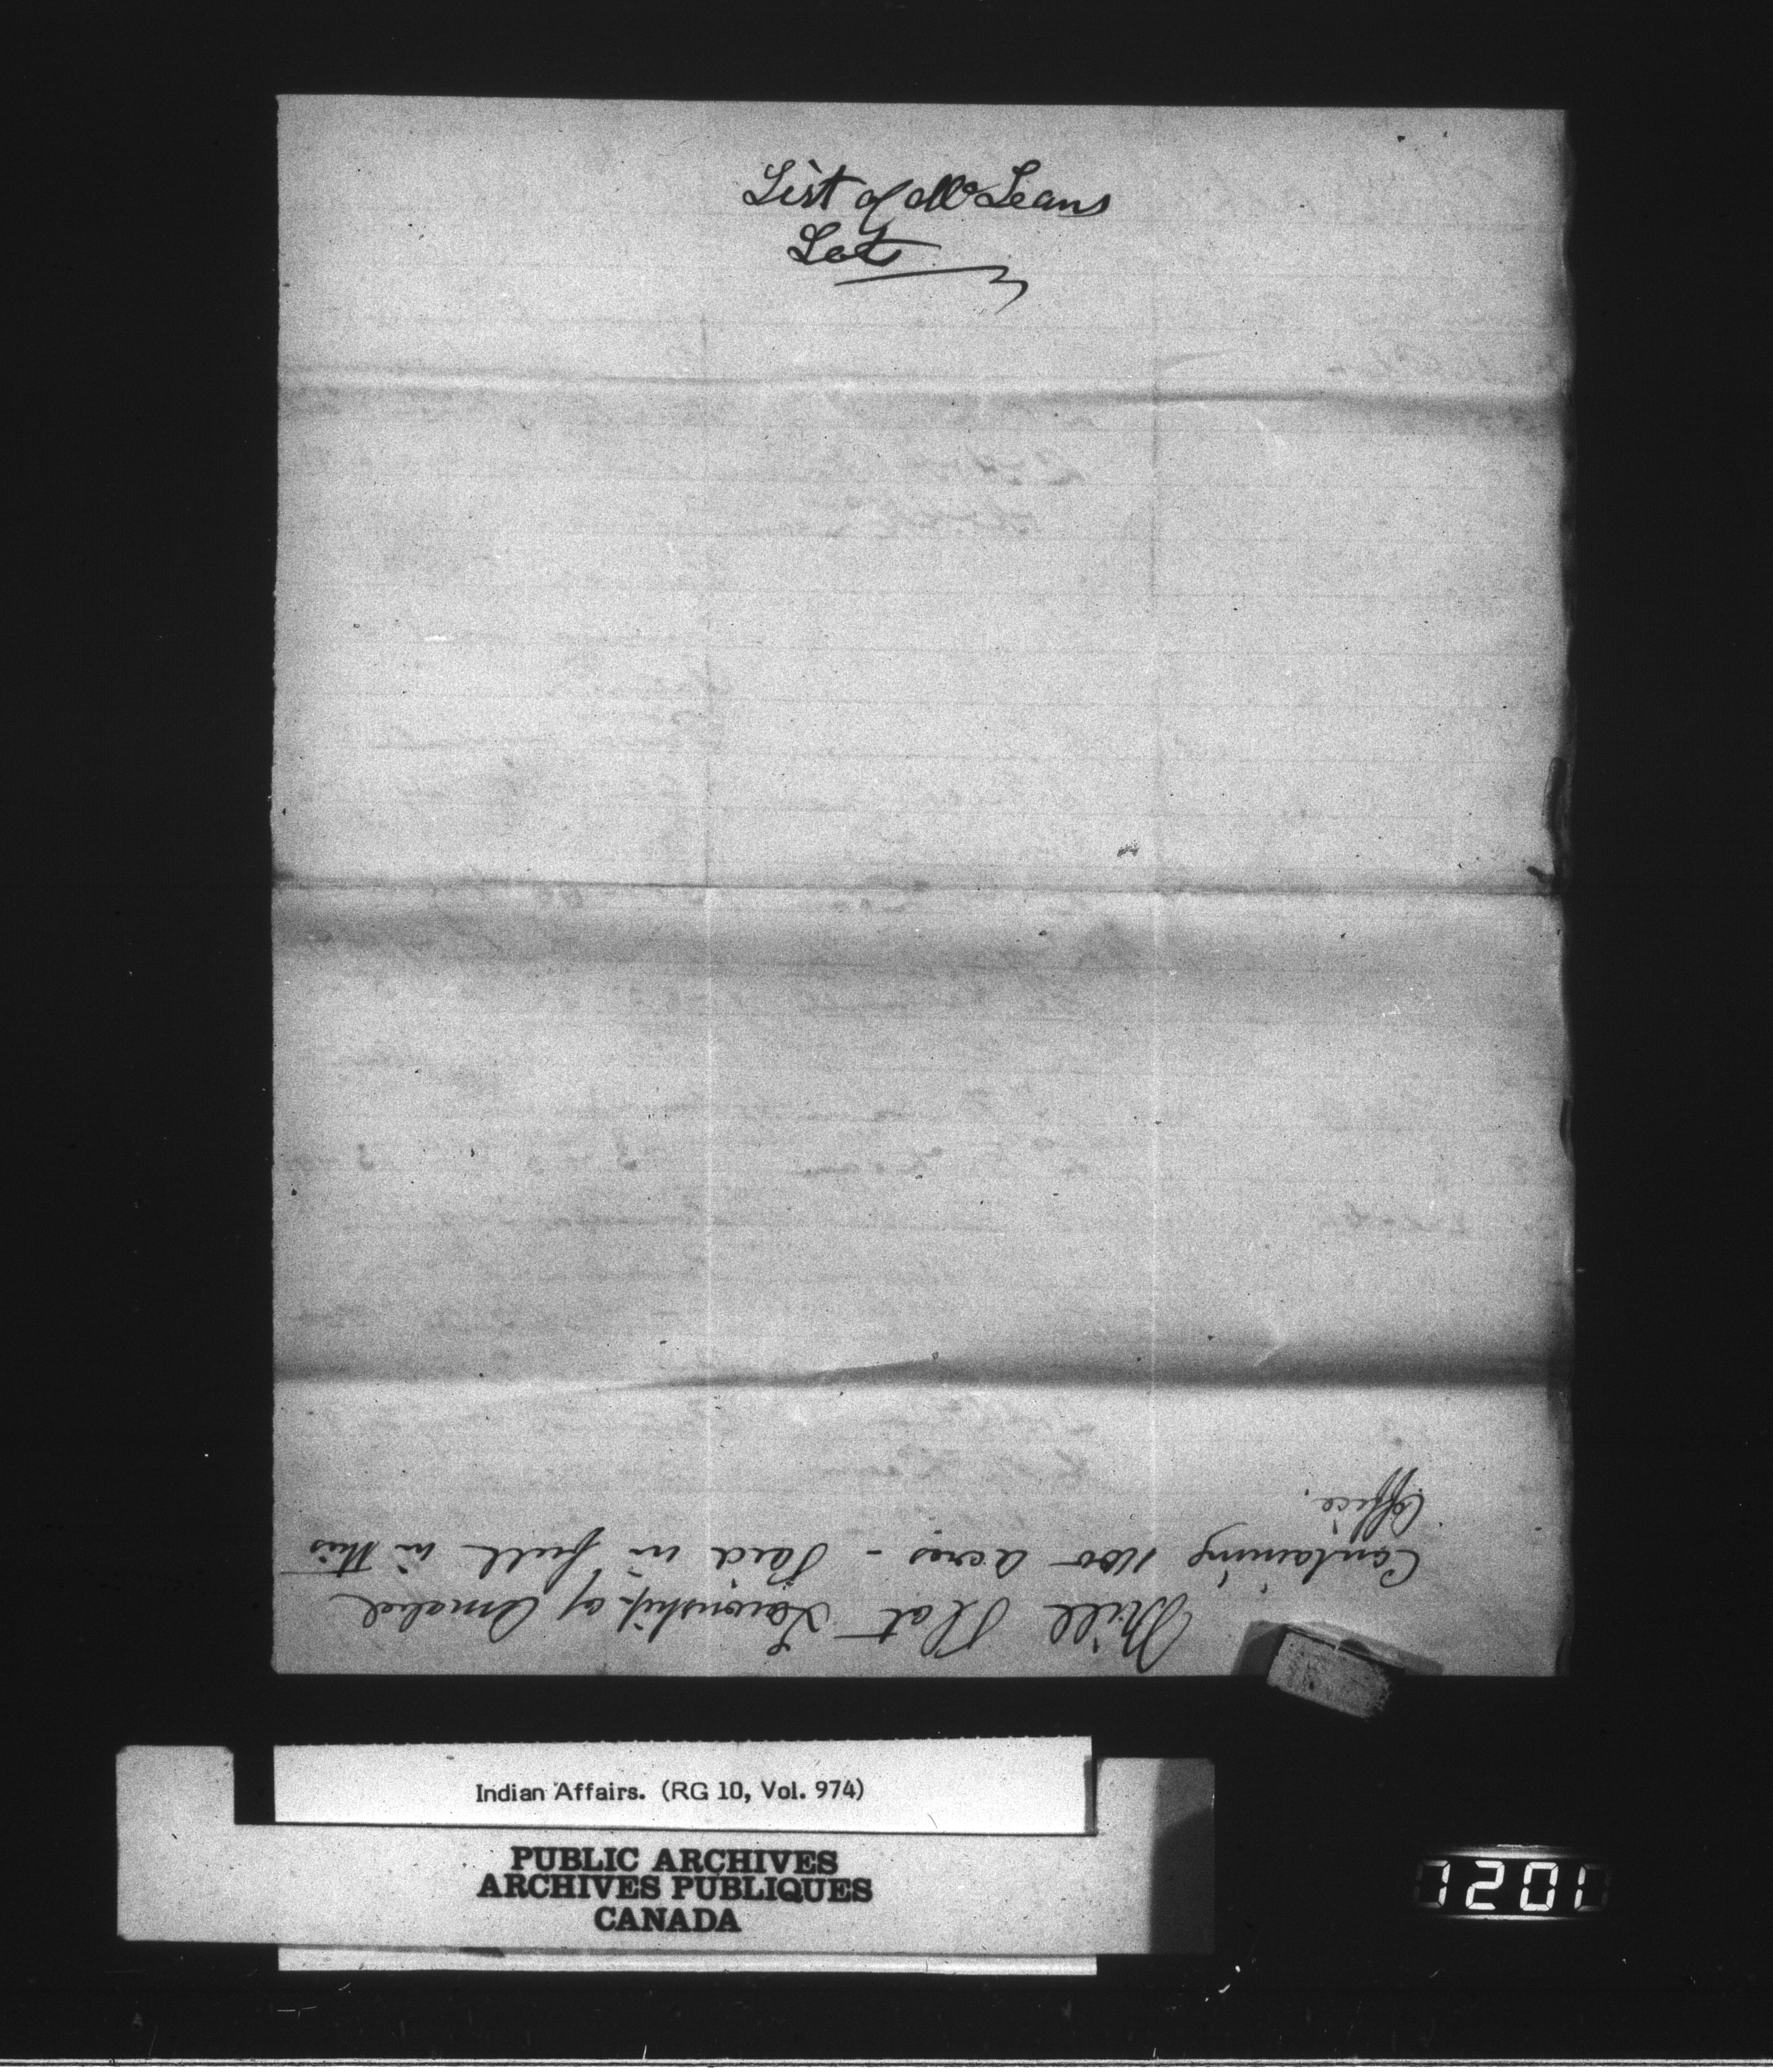 List of Mc Leans
Lot
Mill Plat Township of Amabel
Containing 1100 acres - Paid in full in this
Office.
Indian Affairs. (RG 10, Vol. 974)
PUBLIC ARCHIVES
ARCHIVES PUBLIQUES
CANADA
1201